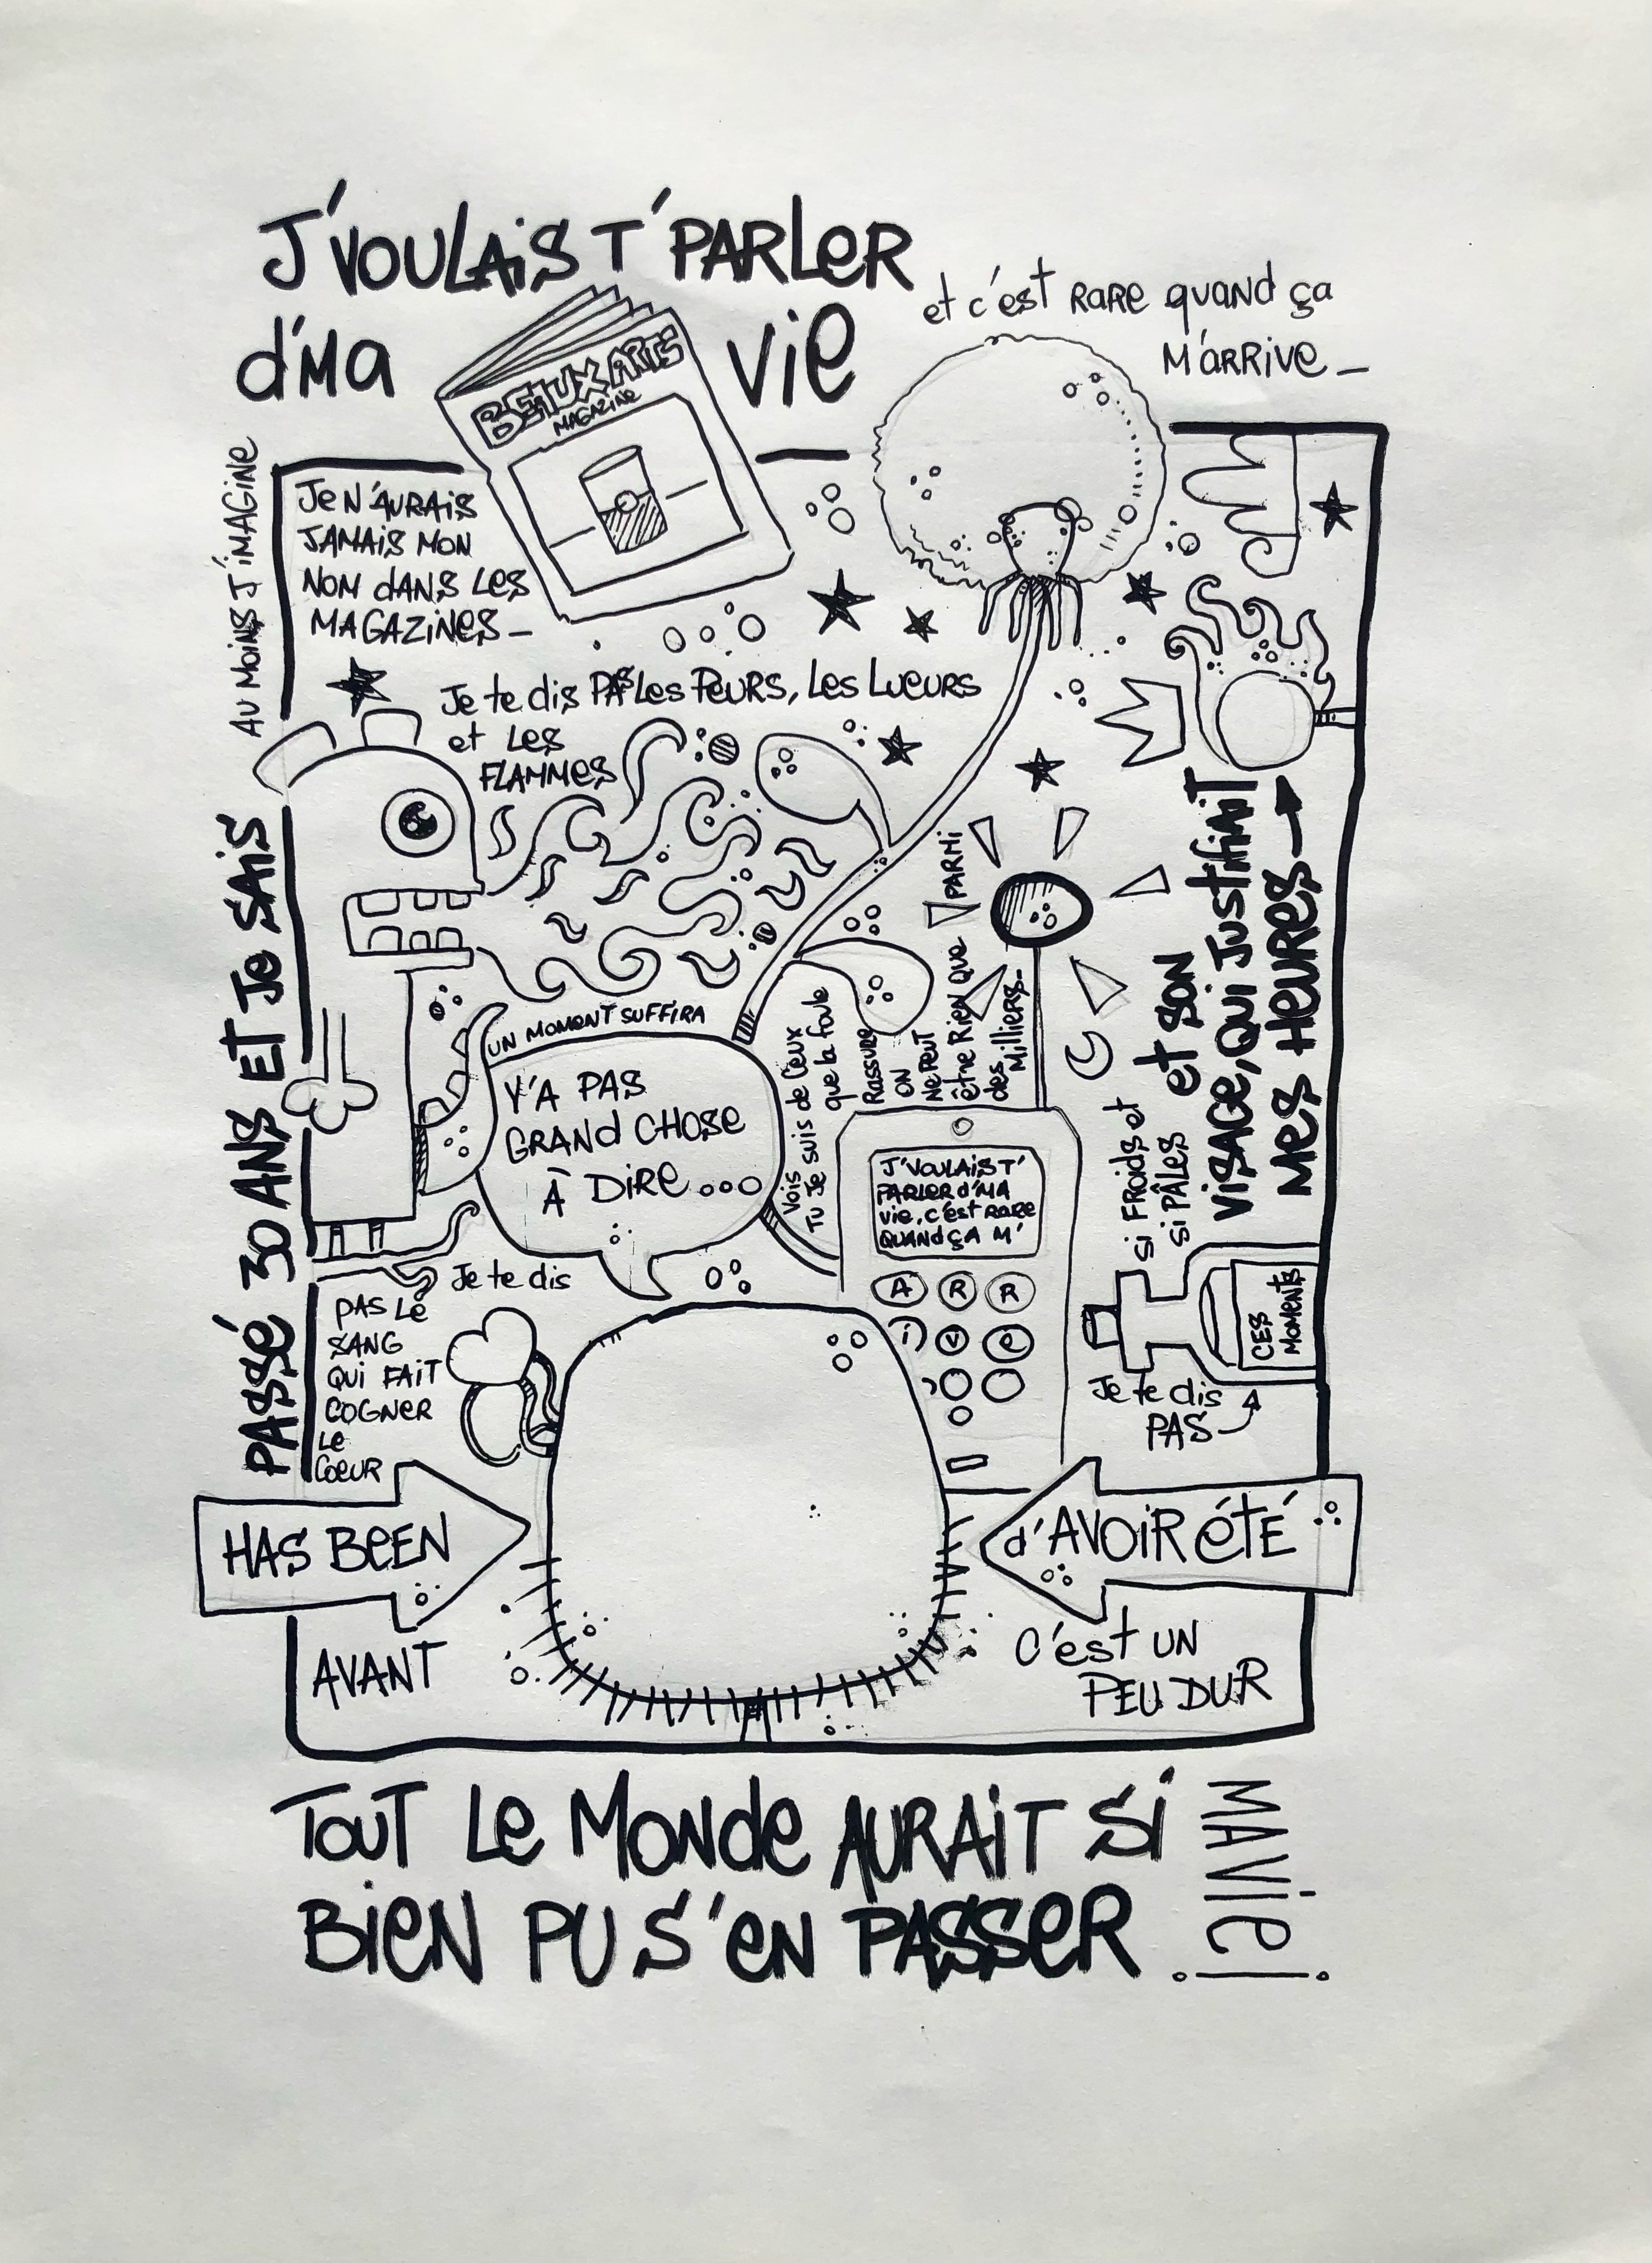 J'VOULAIS T'PARLER
d'MA vie
et c'est RARE quand ça
M'ARRIVE_
BEAUX ARTS
MAGAZINE
AU MOINS J'IMAGINE
Je N'AURAIS
JAMAIS MON
NOM dANS LES
MAGAZINES_
Je te dis PAS Les Peurs, Les Lueurs
et Les
FLAMMES
PASSÉ 30 ANS ET Je SAIS
UN MOMENT SUFFIRA
Y'A PAS
GRANd CHOSe
À DIRE...
Vois
Tu Je suis de Ceux
que la foule
Rassure
ON
NePeuT
être Rien que
des Milliers_
PARMI
J'VOULAIS T'
PARLER d'MA
vie, c'est RARE
QUAND ÇA M'
A R R
i v e
et SON
VISAGE, QUI JUSTIFIAIT
Mes HeURes
si FRoids et
si PÂLes
CES
MOMENTS
Je te dis
PAS
Je te dis
PAS Le
SANG
QUI FAIT
COGNeR
Le
COeUR
HAS BeeN
AVANT
d'AVOIR éTÉ
C'est UN
PEU DUR
TOUT Le MONde AURAIT SI
BieN PU S'eN PASSeR
MA Vie!